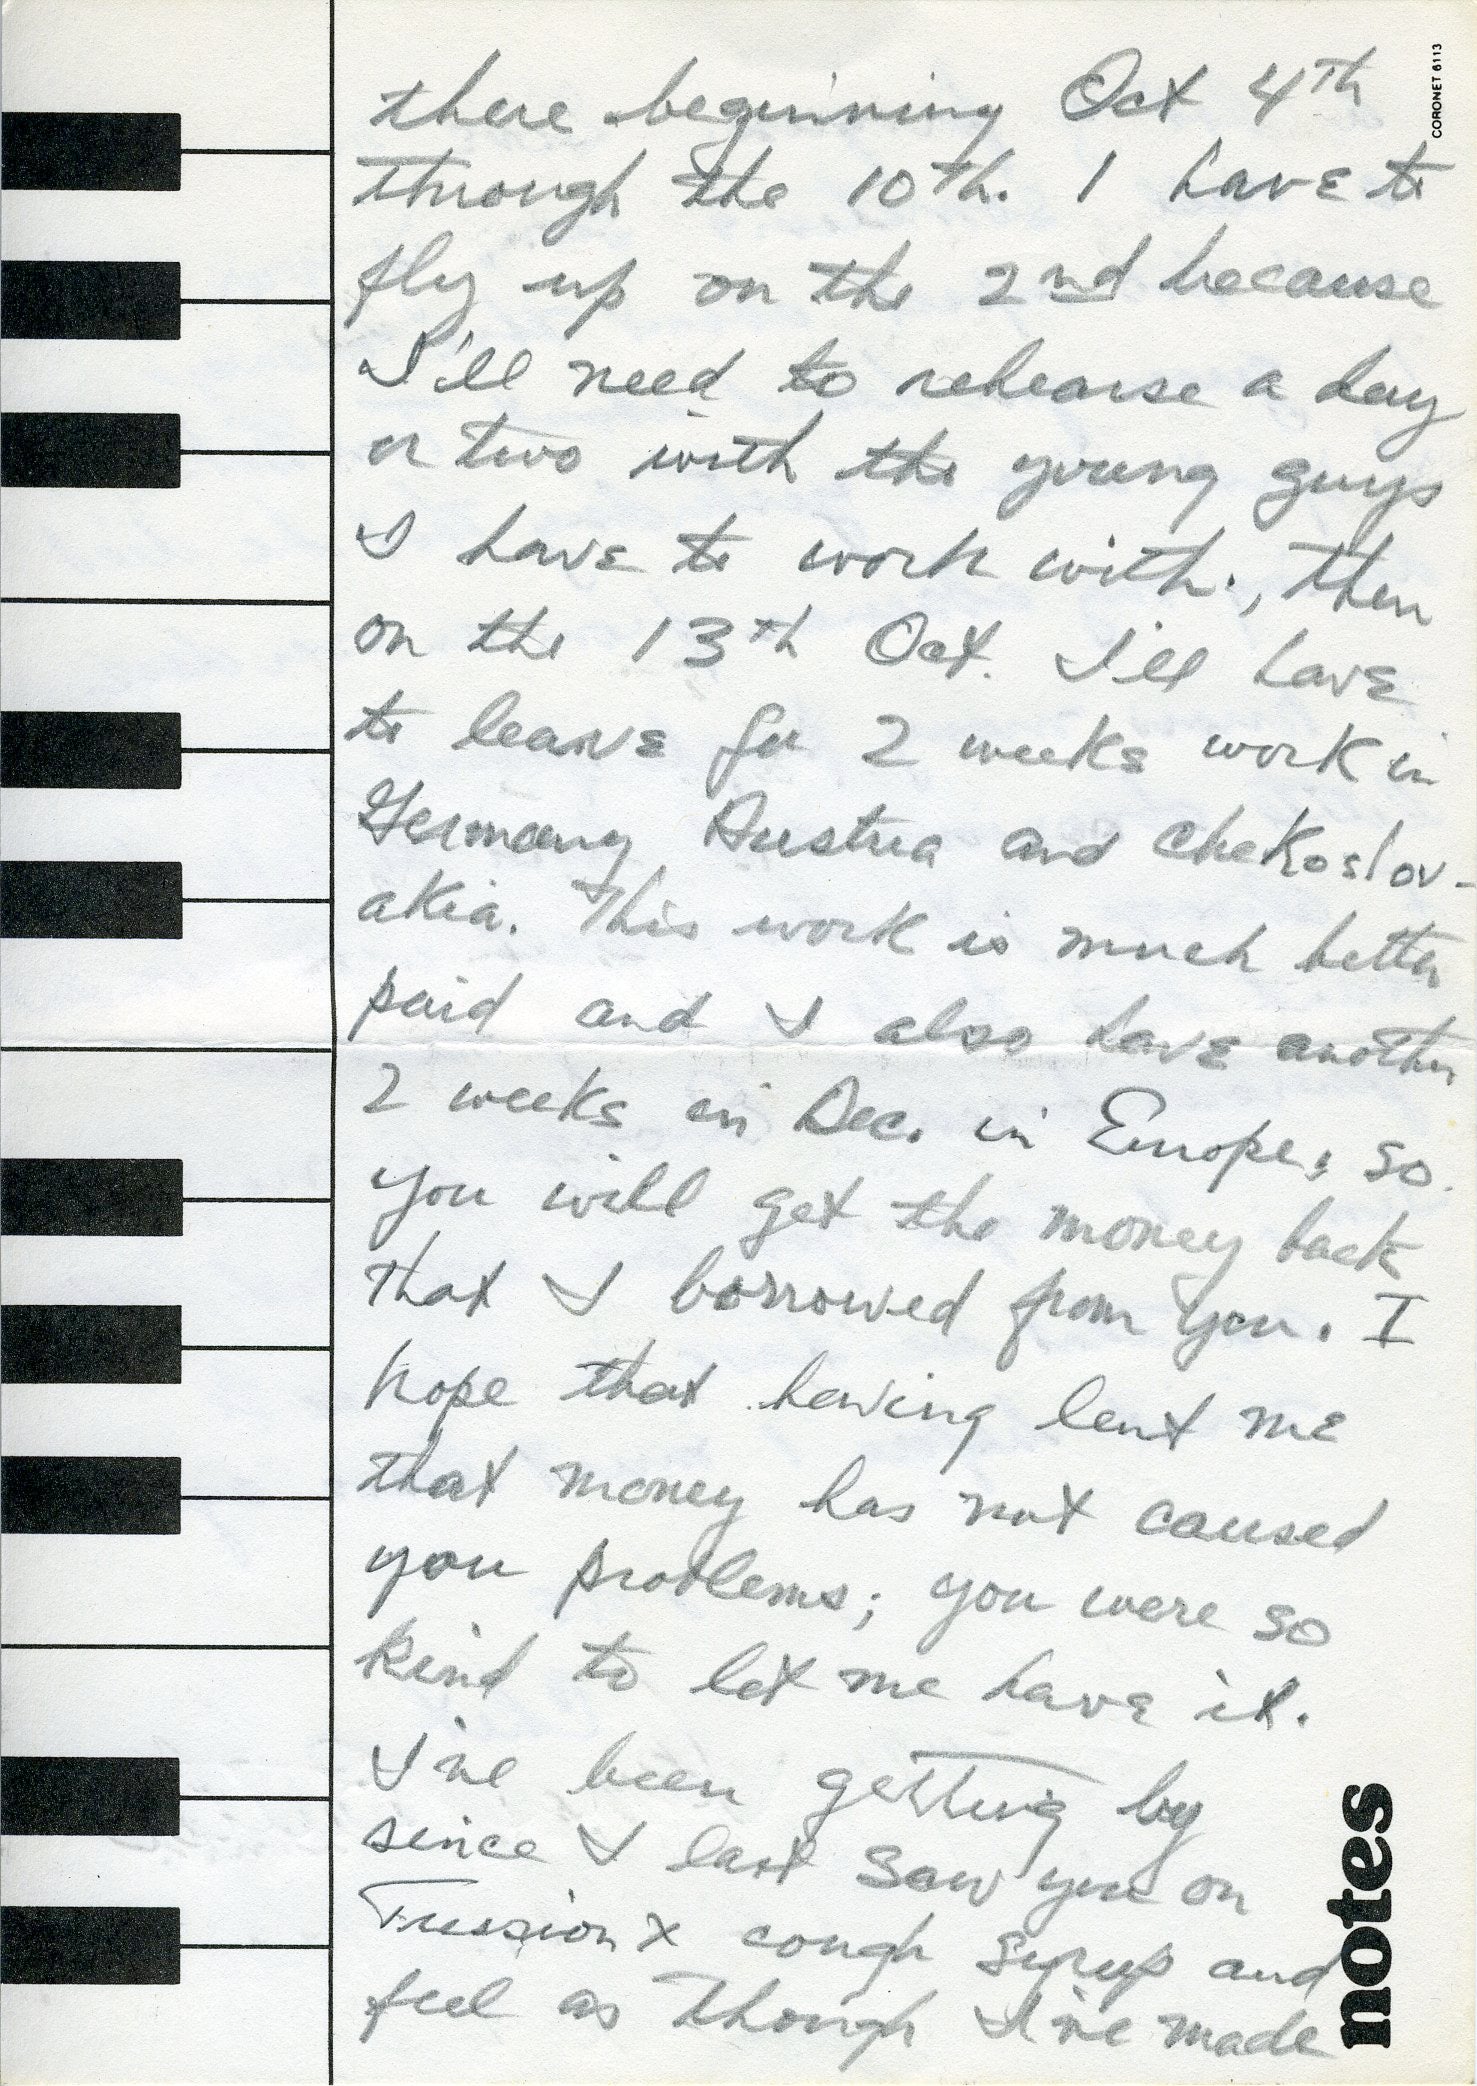 CORONET 6113
there beginning Oct 4th
through the 10th. I have to
fly up on the 2nd because
I'll need to rehearse a day
or two with the young guys
I have to work with., then
on the 13th Oct. I'll have
to leave for 2 weeks work in
Germany, Austria and Chekoslov-
akia. This work is much better
paid and I also have another
2 weeks in Dec. in Europe; so
you will get the money back
that I borrowed from you. I
hope that having lent me
that money has not caused
you problems; you were so
kind to let me have it.
I've been getting by
since I last saw you on
Tussionx cough syrup and
feel as though I've made
notes